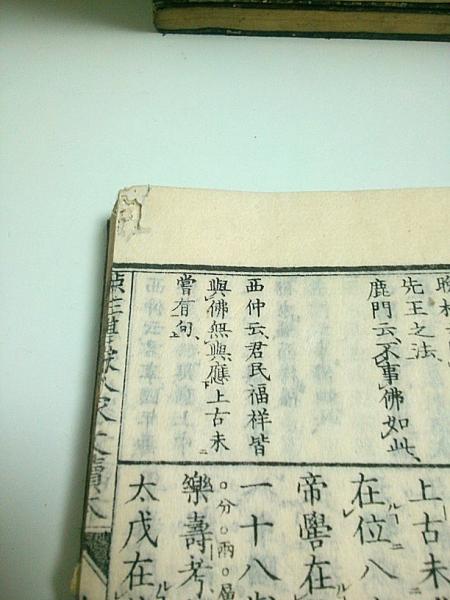 先王之法、
鹿門云、不事佛如此、
西仲云、君民福祥皆
與佛無與、應上古未
嘗有句、
上古未
在位八
帝嚳在
一十八
分兩層
樂壽考
太戊在